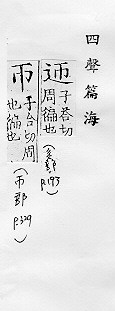 四聲篇海
迊子荅切
周徧也
(辵部 p.193)
帀子合切周
也徧也
(帀部 p.329)